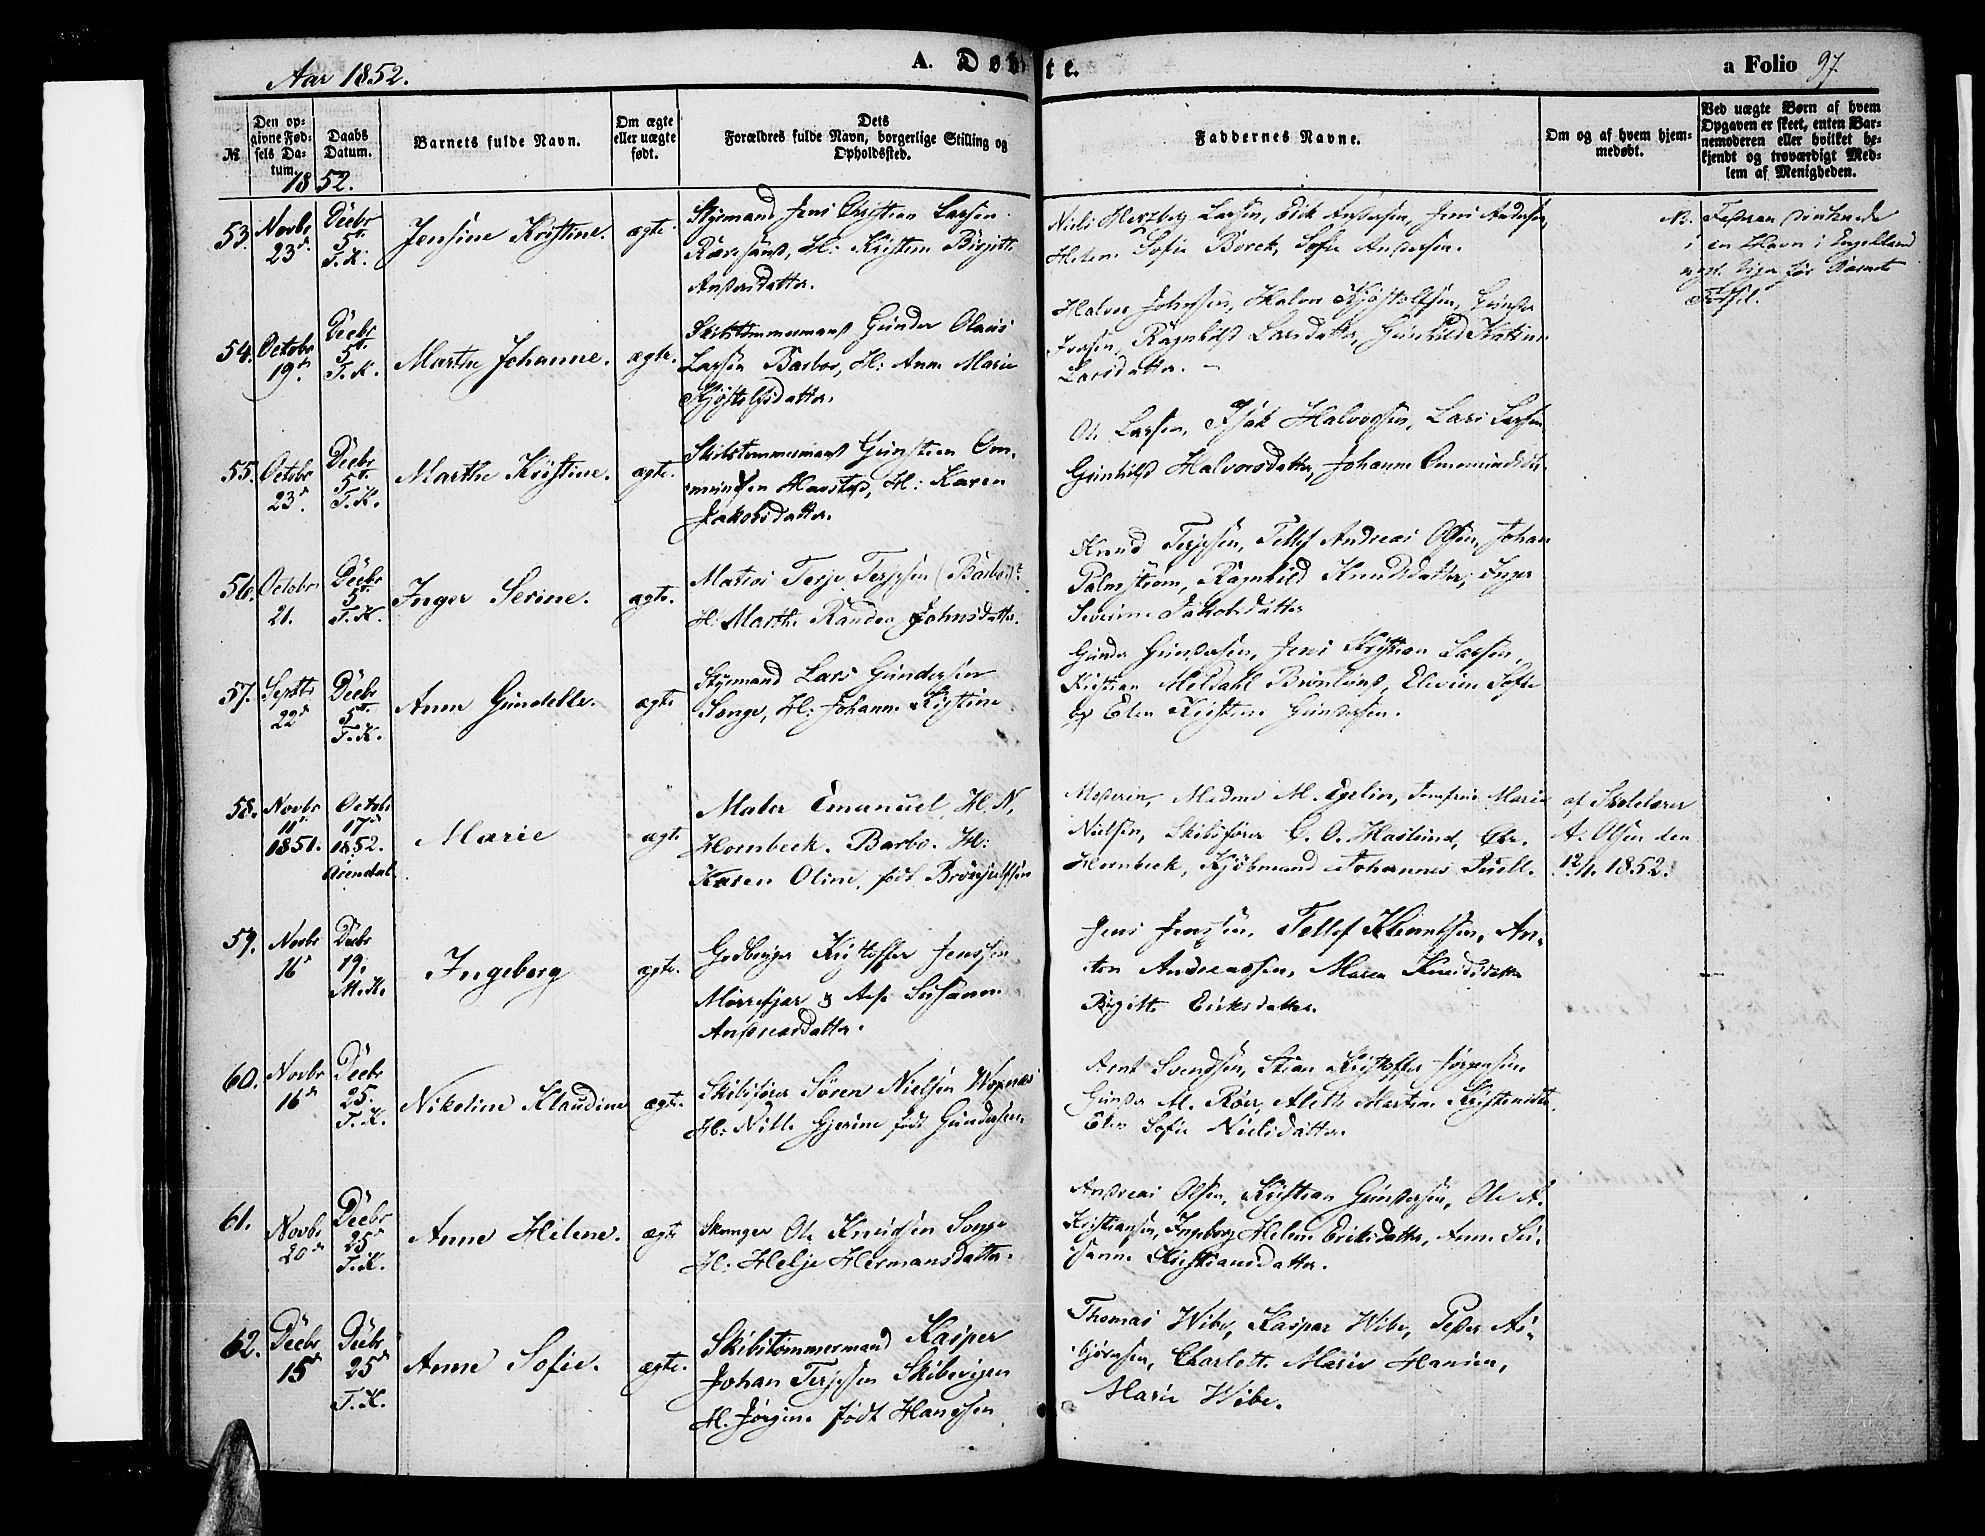 Aar 1852.
A. Døbte.
a Folio 97.
№
Den op-
givne Fød-
sels Da-
tum.
Daabs
Datum.
1852.
Barnets fulde Navn.
Om ægte
eller uægte
født.
Dets
Forældres fulde Navn, borgerlige Stilling og
Opholdssted.
Faddernes Navne.
Om og af hvem hjem-
medøbt.
Ved uægte Børn af hvem
Opgaven er skeet, enten Bar-
nemoderen eller hvilket be-
kjendt og troværdigt Med-
lem af Menigheden.
53. Novbr 23d
Decbr 5te T.K.
Jensine Kristine.
ægte.
Styrmand Jens Christian Larsen
H: Kristen Birgitte
Andersdatter.
Niels Hertzberg Larsen, Erik Andersen, Jens Andersen,
Helene Sofie Borck, Sofie Andersen.
Faderen druknede
i en Havn i Engelland
før Barnets
Fødsel.
54. Octobr 19d
Decbr 5te T.K.
Marthe Johanne.
ægte.
Skibstømmermand Gunder Olaus
Larsen Barbo, H: Anne Marie
Kjøstolfsdatter.
Halvor Johnsen, Halvor Kjøstolfsen, Gunder
Larsen, Ragnhild Larsdatter, Gunhild Katrine
Larsdatter.
55. Octobr 23d
Decbr 5te T.K.
Marthe Kristine.
ægte.
Skibstømmermand Gunsten Om-
mundsen Harstad, H: Karen
Jakobsdatter.
Ole Larsen, Isak Halvorsen, Lars Larsen
Gunhild Halvorsdatter, Johanne Ommundsdt.
56. Octobr 21.
Decbr 5te T.K.
Inger Serine.
ægte.
Matros Terje Terjesen (Barbo)
H: Marthe Randea Johnsdatter.
Knud Terjesen, Tellef Andreas Olsen, Johan
Palmstrøm, Ragnhild Knudsdatter, Inger
Severine Jakobsdatter
57. Septbr 22d
Decbr 5te T.K.
Anne Gundelle.
ægte
Styrmand Lars Gundersen
Songe, H: Johanne Kristine
Gunder Gundersen, Jens Kristian Larsen,
Kristian Meldahl Brønlund, Elevine Sofie
Elen Kristine Gundersen.
58. Novbr 11te 1851.
Octobr 17de 1852. Arendal
Marie
ægte
Maler Emanuel H. N.
Hornbeck. Barbo. H:
Karen Oline, født Brønjulfsen
Moderen, Madme M. Egelin, Jomfrue Marie
Nielsen, Skibsfører C. O. Haslund, Chr.
Hornbeck, Kjøbmand Johannes Duell.
af Skolelærer
A. Olsen den
12/1 1852.
59. Novbr 16d
Decbr 19. M.K.
Ingeborg
ægte.
Kristoffer Jenssen
Mørrefjær & Susanne
Andreasdatter.
Jens Jenssen, Tellef Klemetsen, An-
ton Andreassen, Maren Knudsdatter
Birgitte Eriksdatter.
60. Novbr 16d
Decbr 25. T.K.
Nikoline Klaudine
ægte.
Skibsfører Søren Nielsen Wrengen
H: Nille Gjerine født Gundersen
Arnt Svendsen, Stian Kristoffer Jørgensen
Gunder M. Røer, Aleth Martine Kristensdt.
Elen Sofie Nielsdatter.
61. Novbr 20d
Decbr 25d T.K.
Anne Helene.
ægte
Ole Knudsen Songe
H: Helje Hermansdatter.
Andreas Olsen, Kristian Gundersen, Ole A.
Kristiansen, Ingeborg Helene Eriksdatter, Anne Su-
sanne Kristiansdatter.
62. Decbr 15d
Decbr 25d T.K.
Anne Sofie.
ægte.
Skibstømmermand Kasper
Johan Terjesen Skibevigen
H. Jørgine født Hanssen
Thomas Wibe, Kaspar Wibe, Peder As-
bjørnsen, Charlotte Marie Hansen,
Marie Wibe.